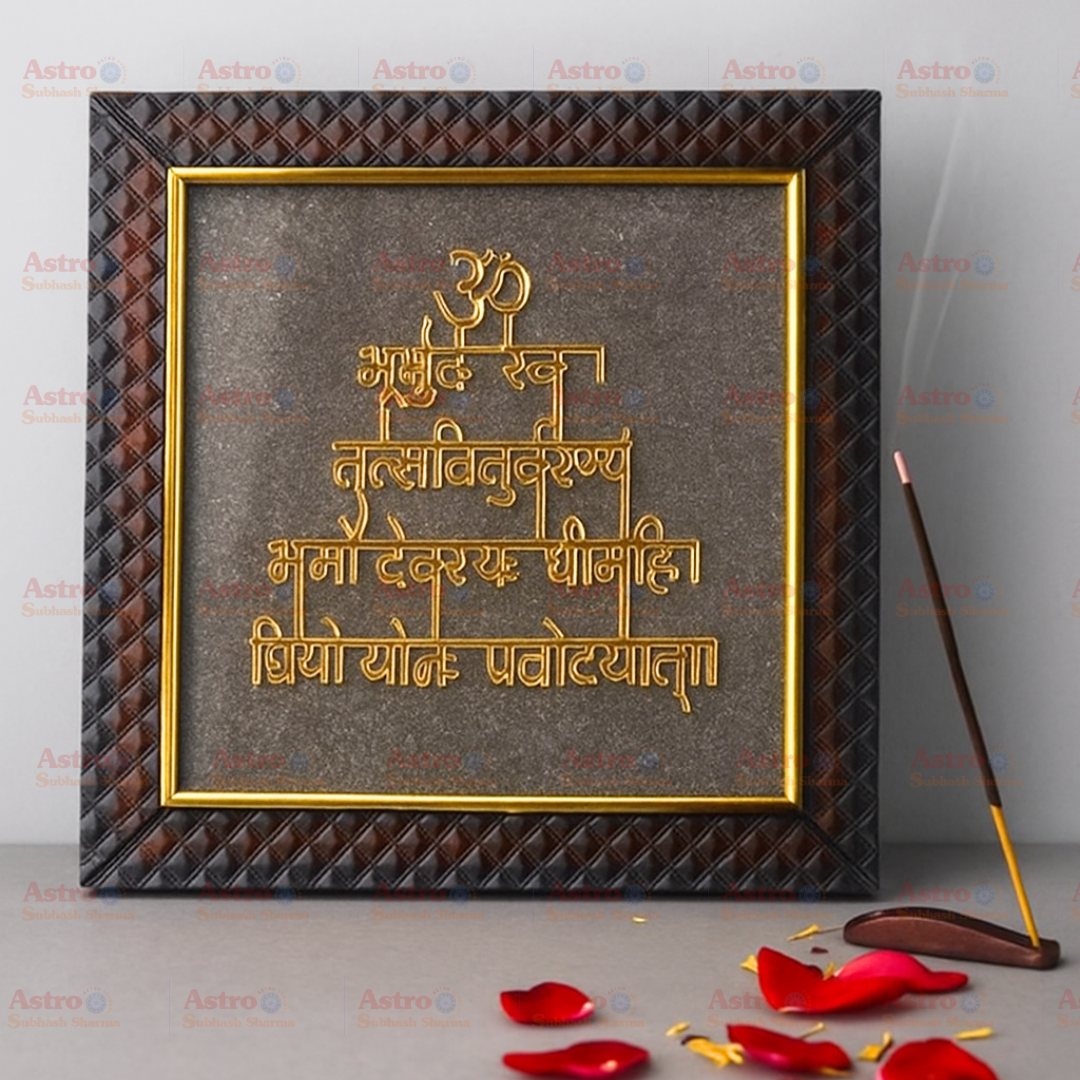 ॐ
भूर्भुदः रव ।
तत्सवितुर्वरेण्य
भर्मो देवरयः धीमहि।
धियो योनः पवोटयात्॥
Astro
Subhash Sharma